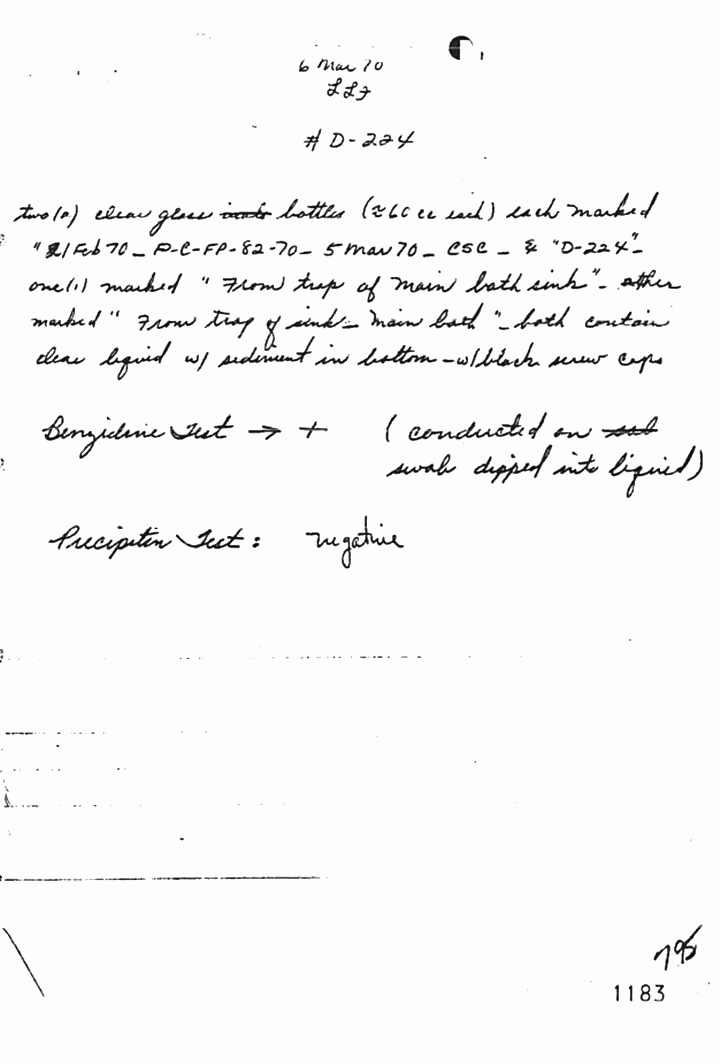 6 Mar 70
LLF
# D-224
two(2) clear glass bottles (≈60 cc each) each marked
"21 Feb 70 _ P-C-FP-82-70 _ 5 Mar 70 _ CSC _ & "D-224" _
one(1) marked " From trap of main bath sink" - other
marked " From trap of sink - main bath " - both contain
clear liquid w/ sediment in bottom - w/black screw caps
Benzidine Test → + ( conducted on
swab dipped into liquid)
Precipitin Test : negative
1183